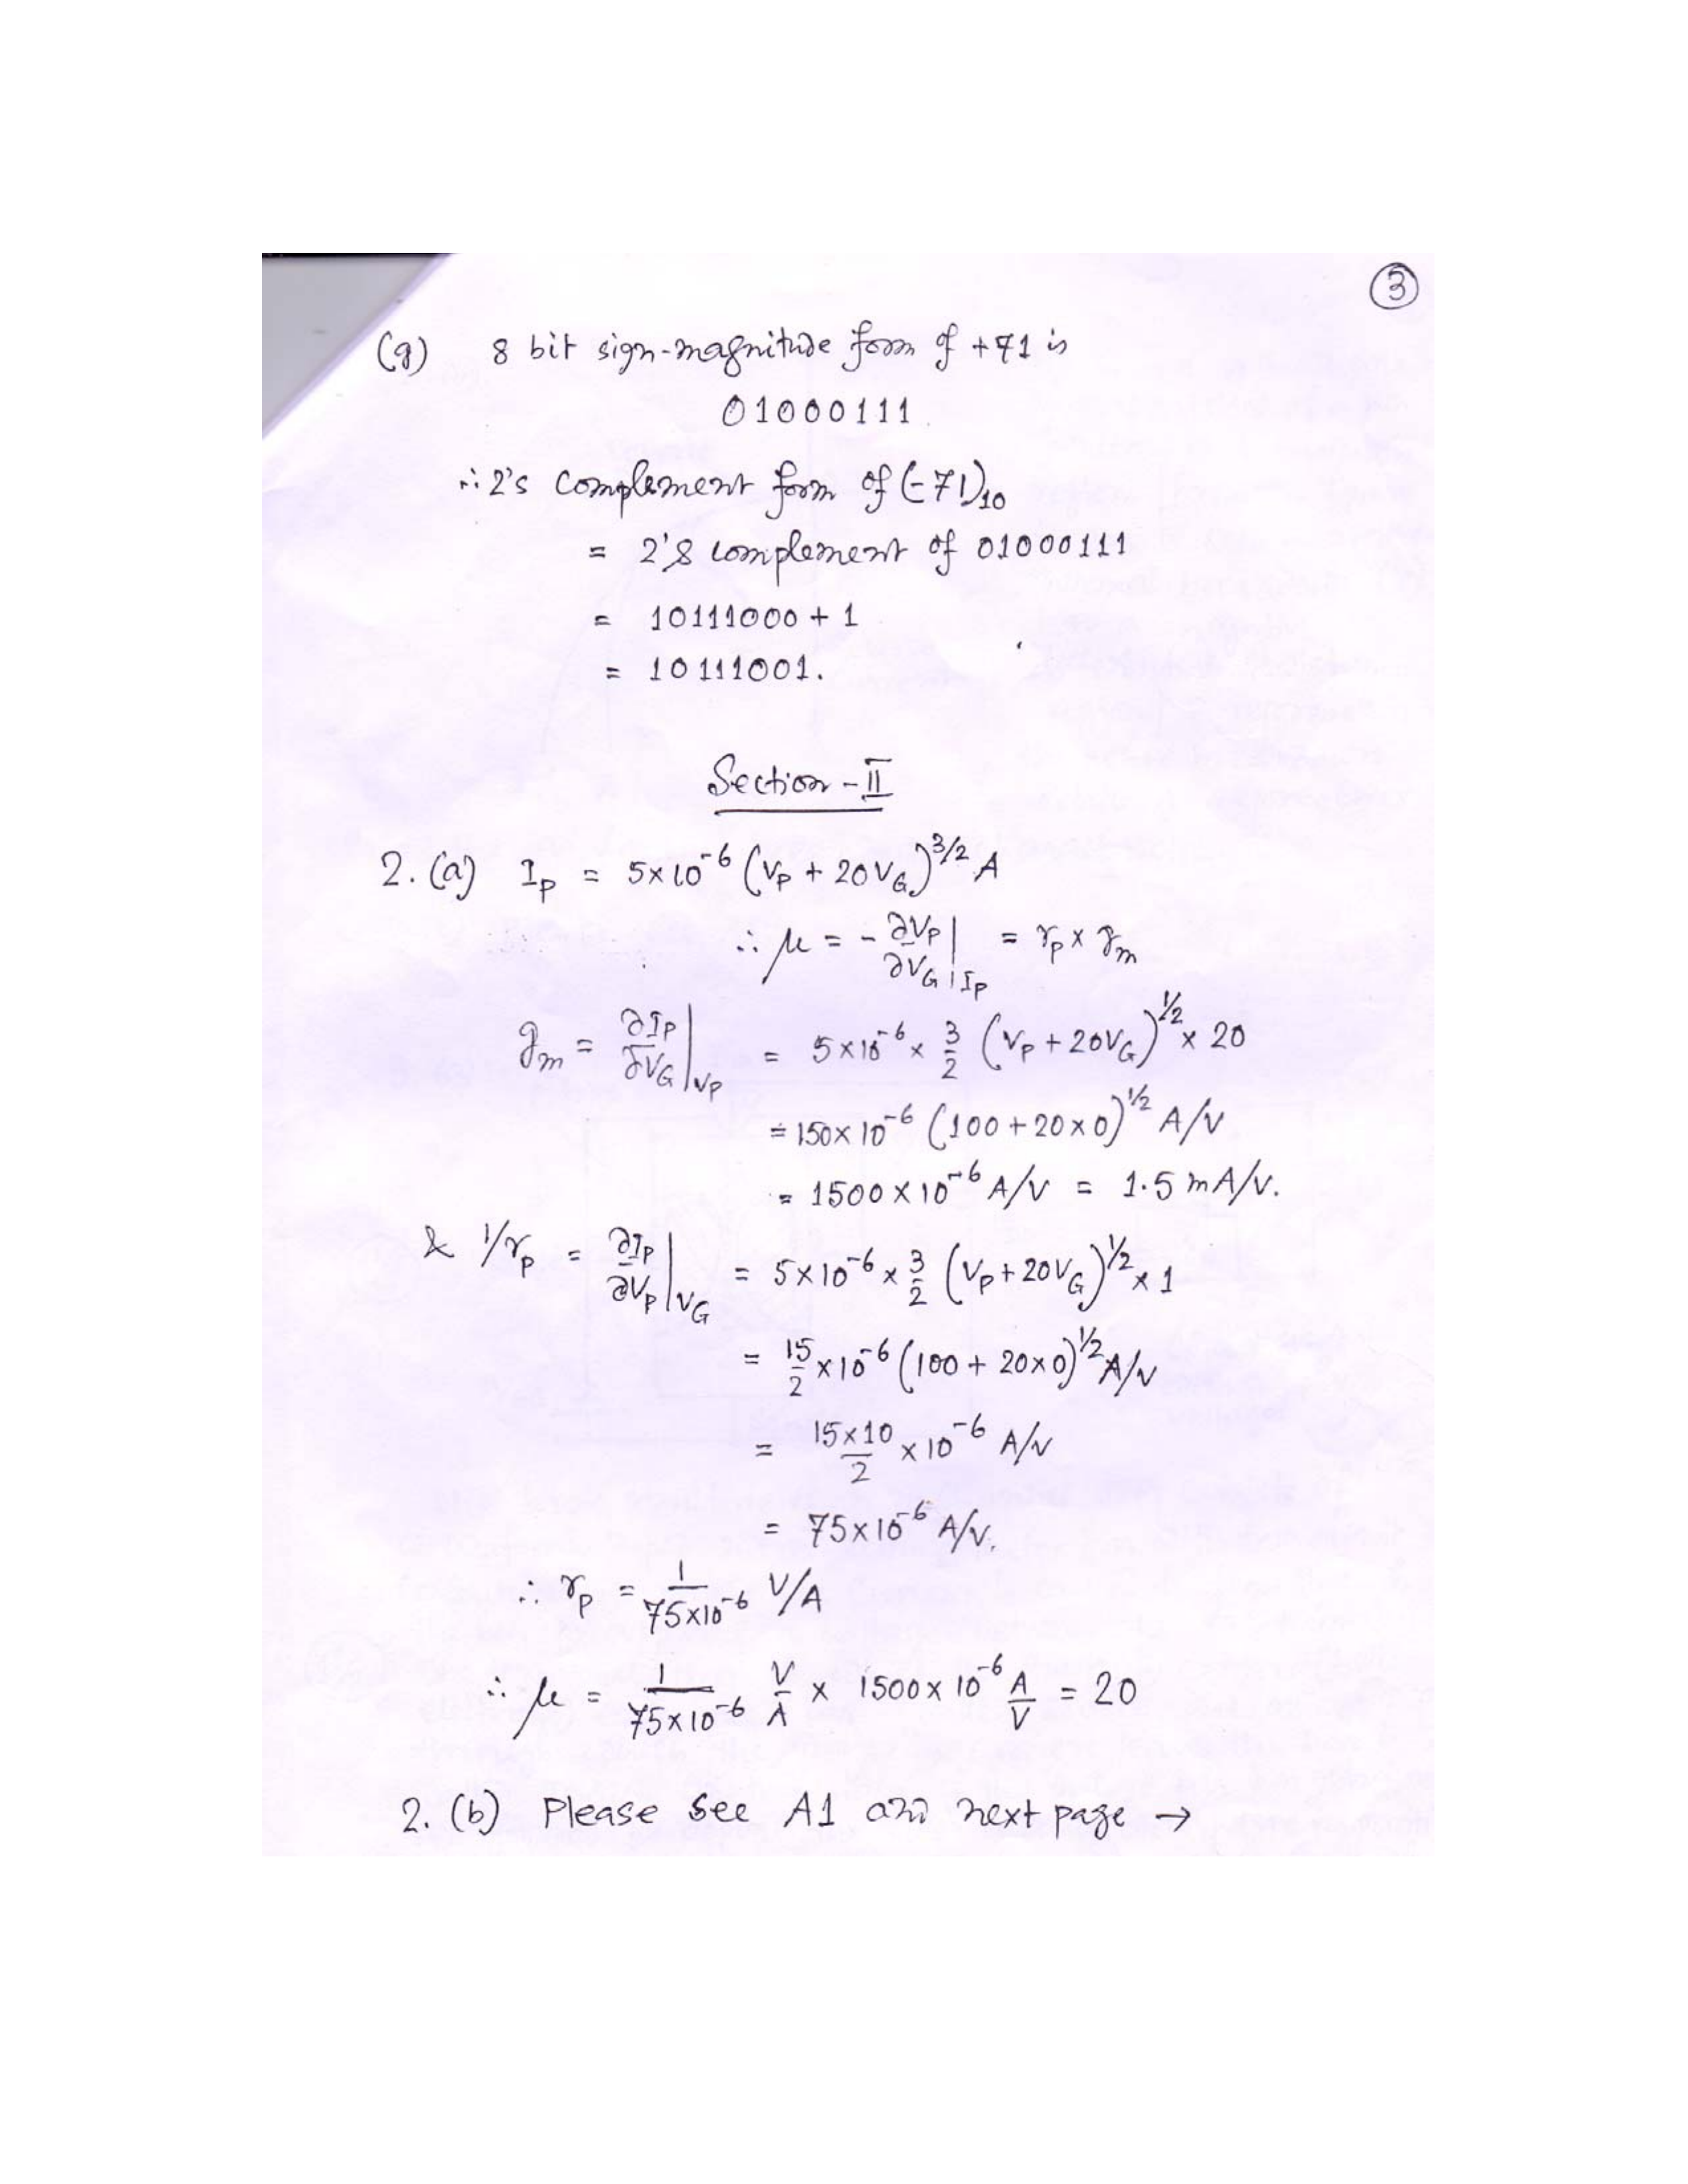 3
(g) 8 bit sign-magnitude form of +71 is
01000111
∴ 2's complement form of (-71)₁₀
= 2's complement of 01000111
= 10111000 + 1
= 10111001.
Section - II
2. (a) I_P = 5×10⁻⁶ (V_P + 20 V_G)^3/2 A
∴ μ = - ∂V_P/∂V_G |_I_P = r_p × g_m
g_m = ∂I_P/∂V_G |_V_P = 5×10⁻⁶ × 3/2 (V_P + 20V_G)^1/2 × 20
= 150×10⁻⁶ (100 + 20×0)^1/2 A/V
= 1500×10⁻⁶ A/V = 1.5 mA/V.
& 1/r_p = ∂I_P/∂V_P |_V_G = 5×10⁻⁶ × 3/2 (V_P + 20V_G)^1/2 × 1
= 15/2 ×10⁻⁶ (100 + 20×0)^1/2 A/V
= 15×10/2 ×10⁻⁶ A/V
= 75×10⁻⁶ A/V.
∴ r_p = 1/75×10⁻⁶ V/A
∴ μ = 1/75×10⁻⁶ V/A × 1500×10⁻⁶ A/V = 20
2. (b) Please see A1 and next page →